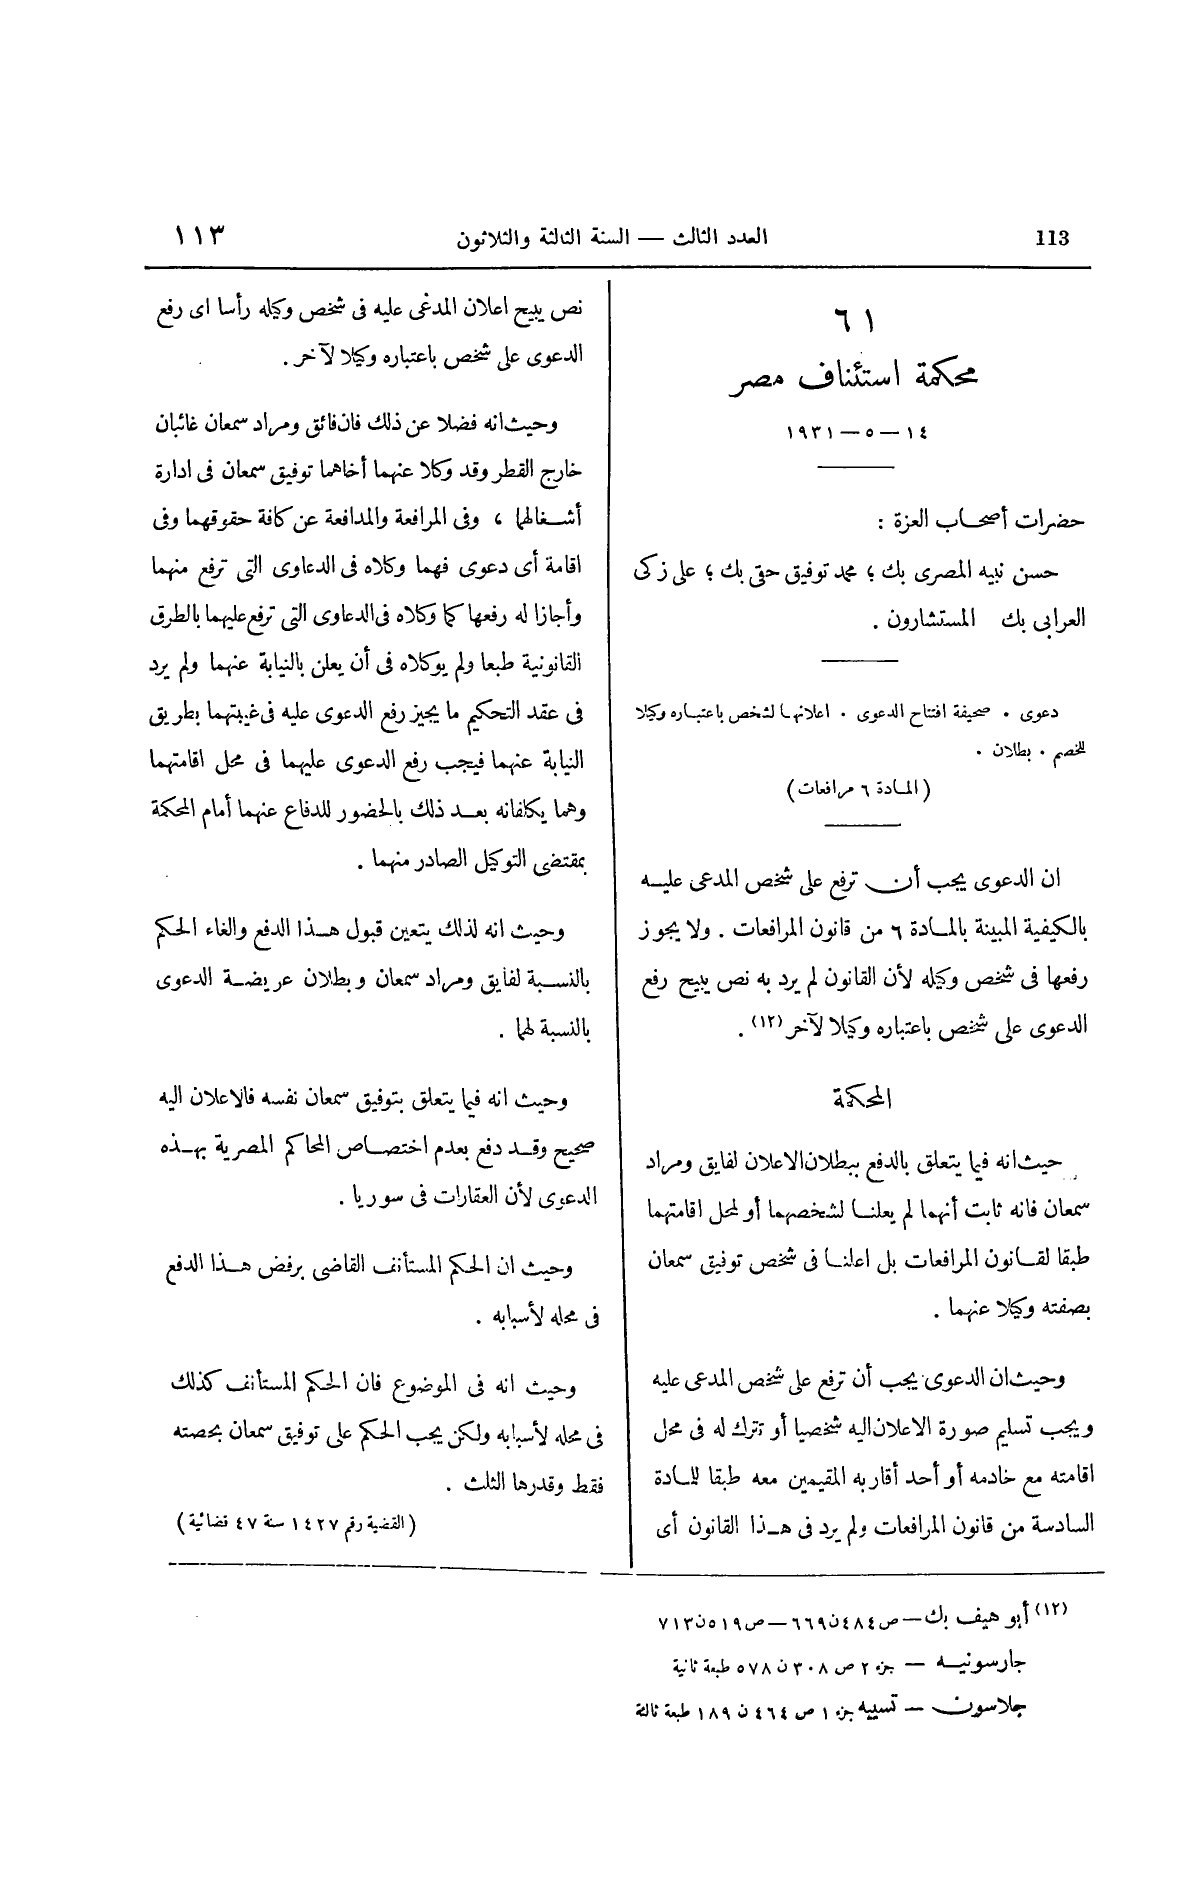 113
العدد الثالث — السنة الثالثة والثلاثون
١١٣
٦١
محكمة استئناف مصر
١٤ — ٥ — ١٩٣١
حضرات أصحاب العزة :
حسن نبيه المصرى بك ؛ محمد توفيق حقى بك ؛ على زكى
العرابى بك المستشارون .
دعوى . صحيفة افتتاح الدعوى . اعلانها لشخص باعتباره وكيلا
للخصم . بطلان .
( المادة ٦ مرافعات)
ان الدعوى يجب أن ترفع على شخص المدعى عليه
بالكيفية المبينة بالمادة ٦ من قانون المرافعات . ولا يجوز
رفعها فى شخص وكيله لأن القانون لم يرد به نص يبيح رفع
الدعوى على شخص باعتباره وكيلا لآخر (١٢) .
المحكمة
حيث انه فيما يتعلق بالدفع ببطلان الاعلان لفايق ومراد
سمعان فانه ثابت أنهما لم يعلنا لشخصهما أو لمحل اقامتهما
طبقا لقانون المرافعات بل اعلنا فى شخص توفيق سمعان
بصفته وكيلا عنهما .
وحيث ان الدعوى يجب أن ترفع على شخص المدعى عليه
ويجب تسليم صورة الاعلان اليه شخصيا أو تترك له فى محل
اقامته مع خادمه أو أحد أقاربه المقيمين معه طبقا للمادة
السادسة من قانون المرافعات ولم يرد فى هذا القانون أى
نص يبيح اعلان المدعى عليه فى شخص وكيله رأسا اى رفع
الدعوى على شخص باعتباره وكيلا لآخر .
وحيث انه فضلا عن ذلك فان فائق ومراد سمعان غائبان
خارج القطر وقد وكلا عنهما أخاهما توفيق سمعان فى ادارة
أشغالهما ، وفى المرافعة والمدافعة عن كافة حقوقهما وفى
اقامة أى دعوى فهما وكلاه فى الدعاوى التى ترفع منهما
وأجازا له رفعها كما وكلاه فى الدعاوى التى ترفع عليهما بالطرق
القانونية طبعا ولم يوكلاه فى أن يعلن بالنيابة عنهما ولم يرد
فى عقد التحكيم ما يجيز رفع الدعوى عليه فى غيبتهما بطريق
النيابة عنهما فيجب رفع الدعوى عليهما فى محل اقامتهما
وهما يكلفانه بعد ذلك بالحضور للدفاع عنهما أمام المحكمة
بمقتضى التوكيل الصادر منهما .
وحيث انه لذلك يتعين قبول هذا الدفع والغاء الحكم
بالنسبة لفايق ومراد سمعان وبطلان عريضة الدعوى
بالنسبة لهما .
وحيث انه فيما يتعلق بتوفيق سمعان نفسه فالاعلان اليه
صحيح وقد دفع بعدم اختصاص المحاكم المصرية بهذه
الدعوى لأن العقارات فى سوريا .
وحيث ان الحكم المستأنف القاضى برفض هذا الدفع
فى محله لأسبابه .
وحيث انه فى الموضوع فان الحكم المستأنف كذلك
فى محله لأسبابه ولكن يجب الحكم على توفيق سمعان بحصته
فقط وقدرها الثلث .
( القضية رقم ١٤٢٧ سنة ٤٧ قضائية )
(١٢) أبو هيف بك — ص ٤٨٤ ن ٦٦٩ — ص ٥١٩ ن ٧١٣
جارسونيه — جزء ٢ ص ٣٠٨ ن ٥٧٨ طبعة ثانية
جلاسون — تسييه جزء ١ ص ٤٦٤ ن ١٨٩ طبعة ثالثة